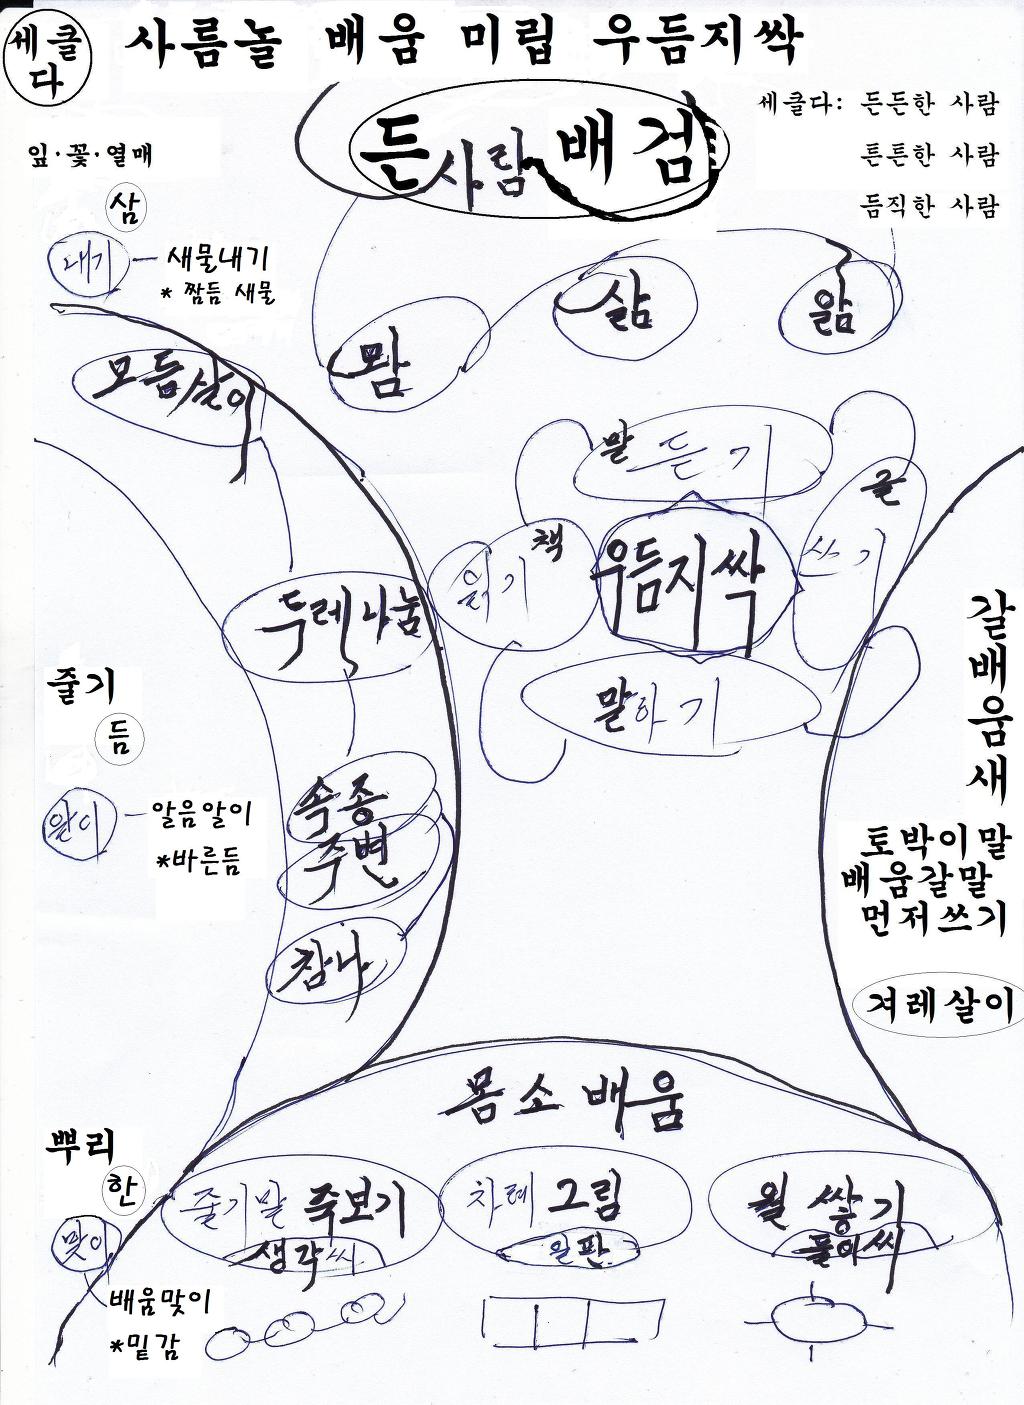 세클
다
사름놀 배움 미립 우듬지싹
든사람 배검
세클다: 든든한 사람
튼튼한 사람
듬직한 사람
잎·꽃·열매
삼
내기
새물내기
* 짬듬 새물
모듬살이
맘
삶
앎
말 듣기
글
쓰기
책
읽기
우듬지싹
말하기
두레나눔
갈배움새
줄기
듬
알이
알음알이
*바른듬
속종
주변
참나
토박이말
배움갈말
먼저쓰기
겨레살이
몸소 배움
뿌리
한
맞이
배움맞이
*밑감
줄기말 죽보기
생각씨
차례 그림
월 쌓기
풀이씨